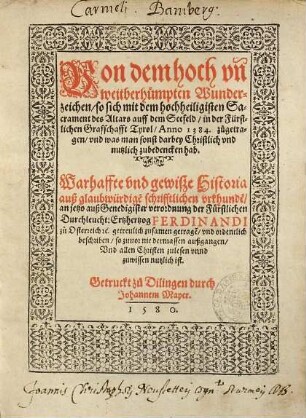 Carmeli Bamberg:
Von dem hoch vñ
weitberhümpten Wunder-
zeichen / so sich mit dem hochheiligisten Sa-
crament des Altars auff dem Seefeld / in der Fürst-
lichen Graffschafft Tyrol / Anno 1384. zůgetra-
gen / vnd was man sonst darbey Christlich vnd
nutzlich zubedencken hab.
Warhaffte vnd gewiße Historia
auß glaubwürdigẽ schrifftlichen vrkhundẽ /
an jetzo auß Genedigister verordnung der Fürstlichen
Durchleucht: Ertzhertzog FERDINANDI
zů Osterreich rc. getreulich zusamen getragẽ / vnd ordenlich
beschriben / so zuuor nie dermassen außgangen /
Vnd allen Christen zulesen vnnd
zuwissen nutzlich ist.
Getruckt zů Dilingen durch
Johannem Mayer.
1580.
Joannis Christophorj